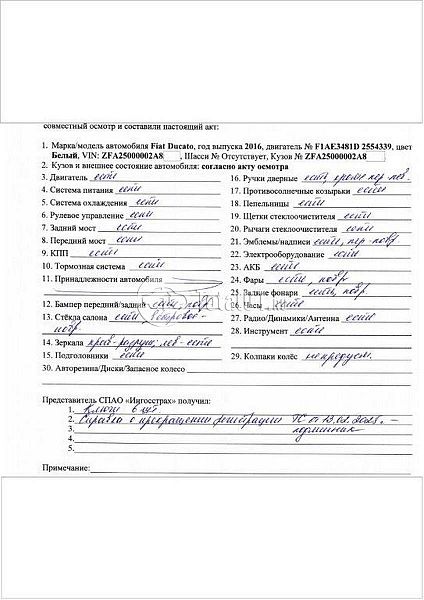 совместный осмотр и составили настоящий акт:
1. Марка/модель автомобиля Fiat Ducato, год выпуска 2016, двигатель № F1AE3481D 2554339, цвет
Белый, VIN: ZFA25000002A8, Шасси № Отсутствует, Кузов № ZFA25000002A8
2. Кузов и внешнее состояние автомобиля: согласно акту осмотра
3. Двигатель есть
4. Система питания есть
5. Система охлаждения есть
6. Рулевое управление есть
7. Задний мост есть
8. Передний мост есть
9. КПП есть
10. Тормозная система есть
11. Принадлежности автомобиля
12. Бампер передний/задний есть, повр.
13. Стёкла салона есть
повр.
14. Зеркала прав - разруш, лев - есть
15. Подголовники есть
16. Ручки дверные есть, кроме пер. лев.
17. Противосолнечные козырьки есть
18. Пепельницы есть
19. Щетки стеклоочистителя есть
20. Рычаги стеклоочистителя есть
21. Эмблемы/надписи есть, пер - повр
22. Электрооборудование есть
23. АКБ есть
24. Фары есть, повр.
25. Задние фонари есть, повр.
26. Часы есть
27. Радио/Динамики/Антенна есть
28. Инструмент есть
29. Колпаки колёс не предусм.
30. Авторезина/Диски/Запасное колесо
Представитель СПАО «Ингосстрах» получил:
1. Ключи 1 шт
2. Справка о прекращении регистрации ТС от 13.02.2025. -
3. подлинник
4.
5.
Примечание: